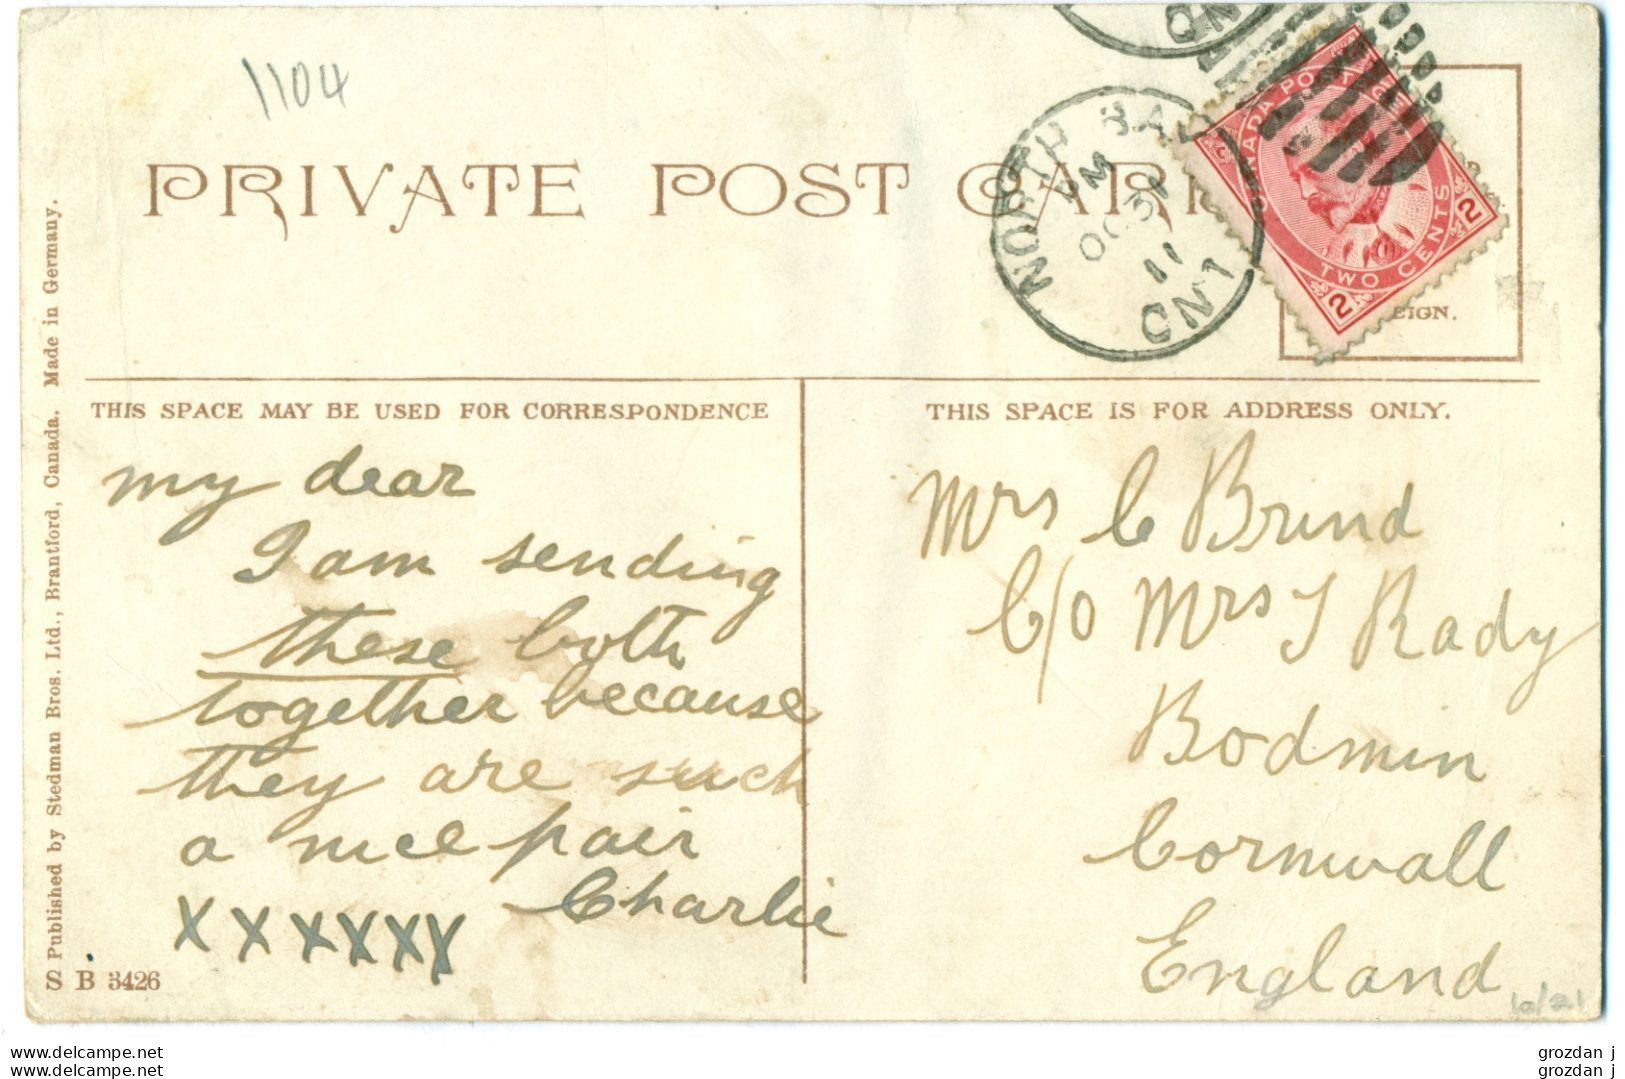 1104
PRIVATE POST CAR
NORTH BAY
PM
OC 31
11
ONT
ON
CANADA POSTAGE
TWO CENTS
2 2
EIGN.
THIS SPACE MAY BE USED FOR CORRESPONDENCE
my dear
I am sending
these both
together because
they are such
a nice pair
Charlie
X X X X X X
THIS SPACE IS FOR ADDRESS ONLY.
Mrs C Brind
C/o Mrs J Rady
Bodmin
Cornwall
England
Published by Stedman Bros. Ltd., Brantford, Canada. Made in Germany.
S B 3426
www.delcampe.net
www.delcampe.net
grozdan j
grozdan j